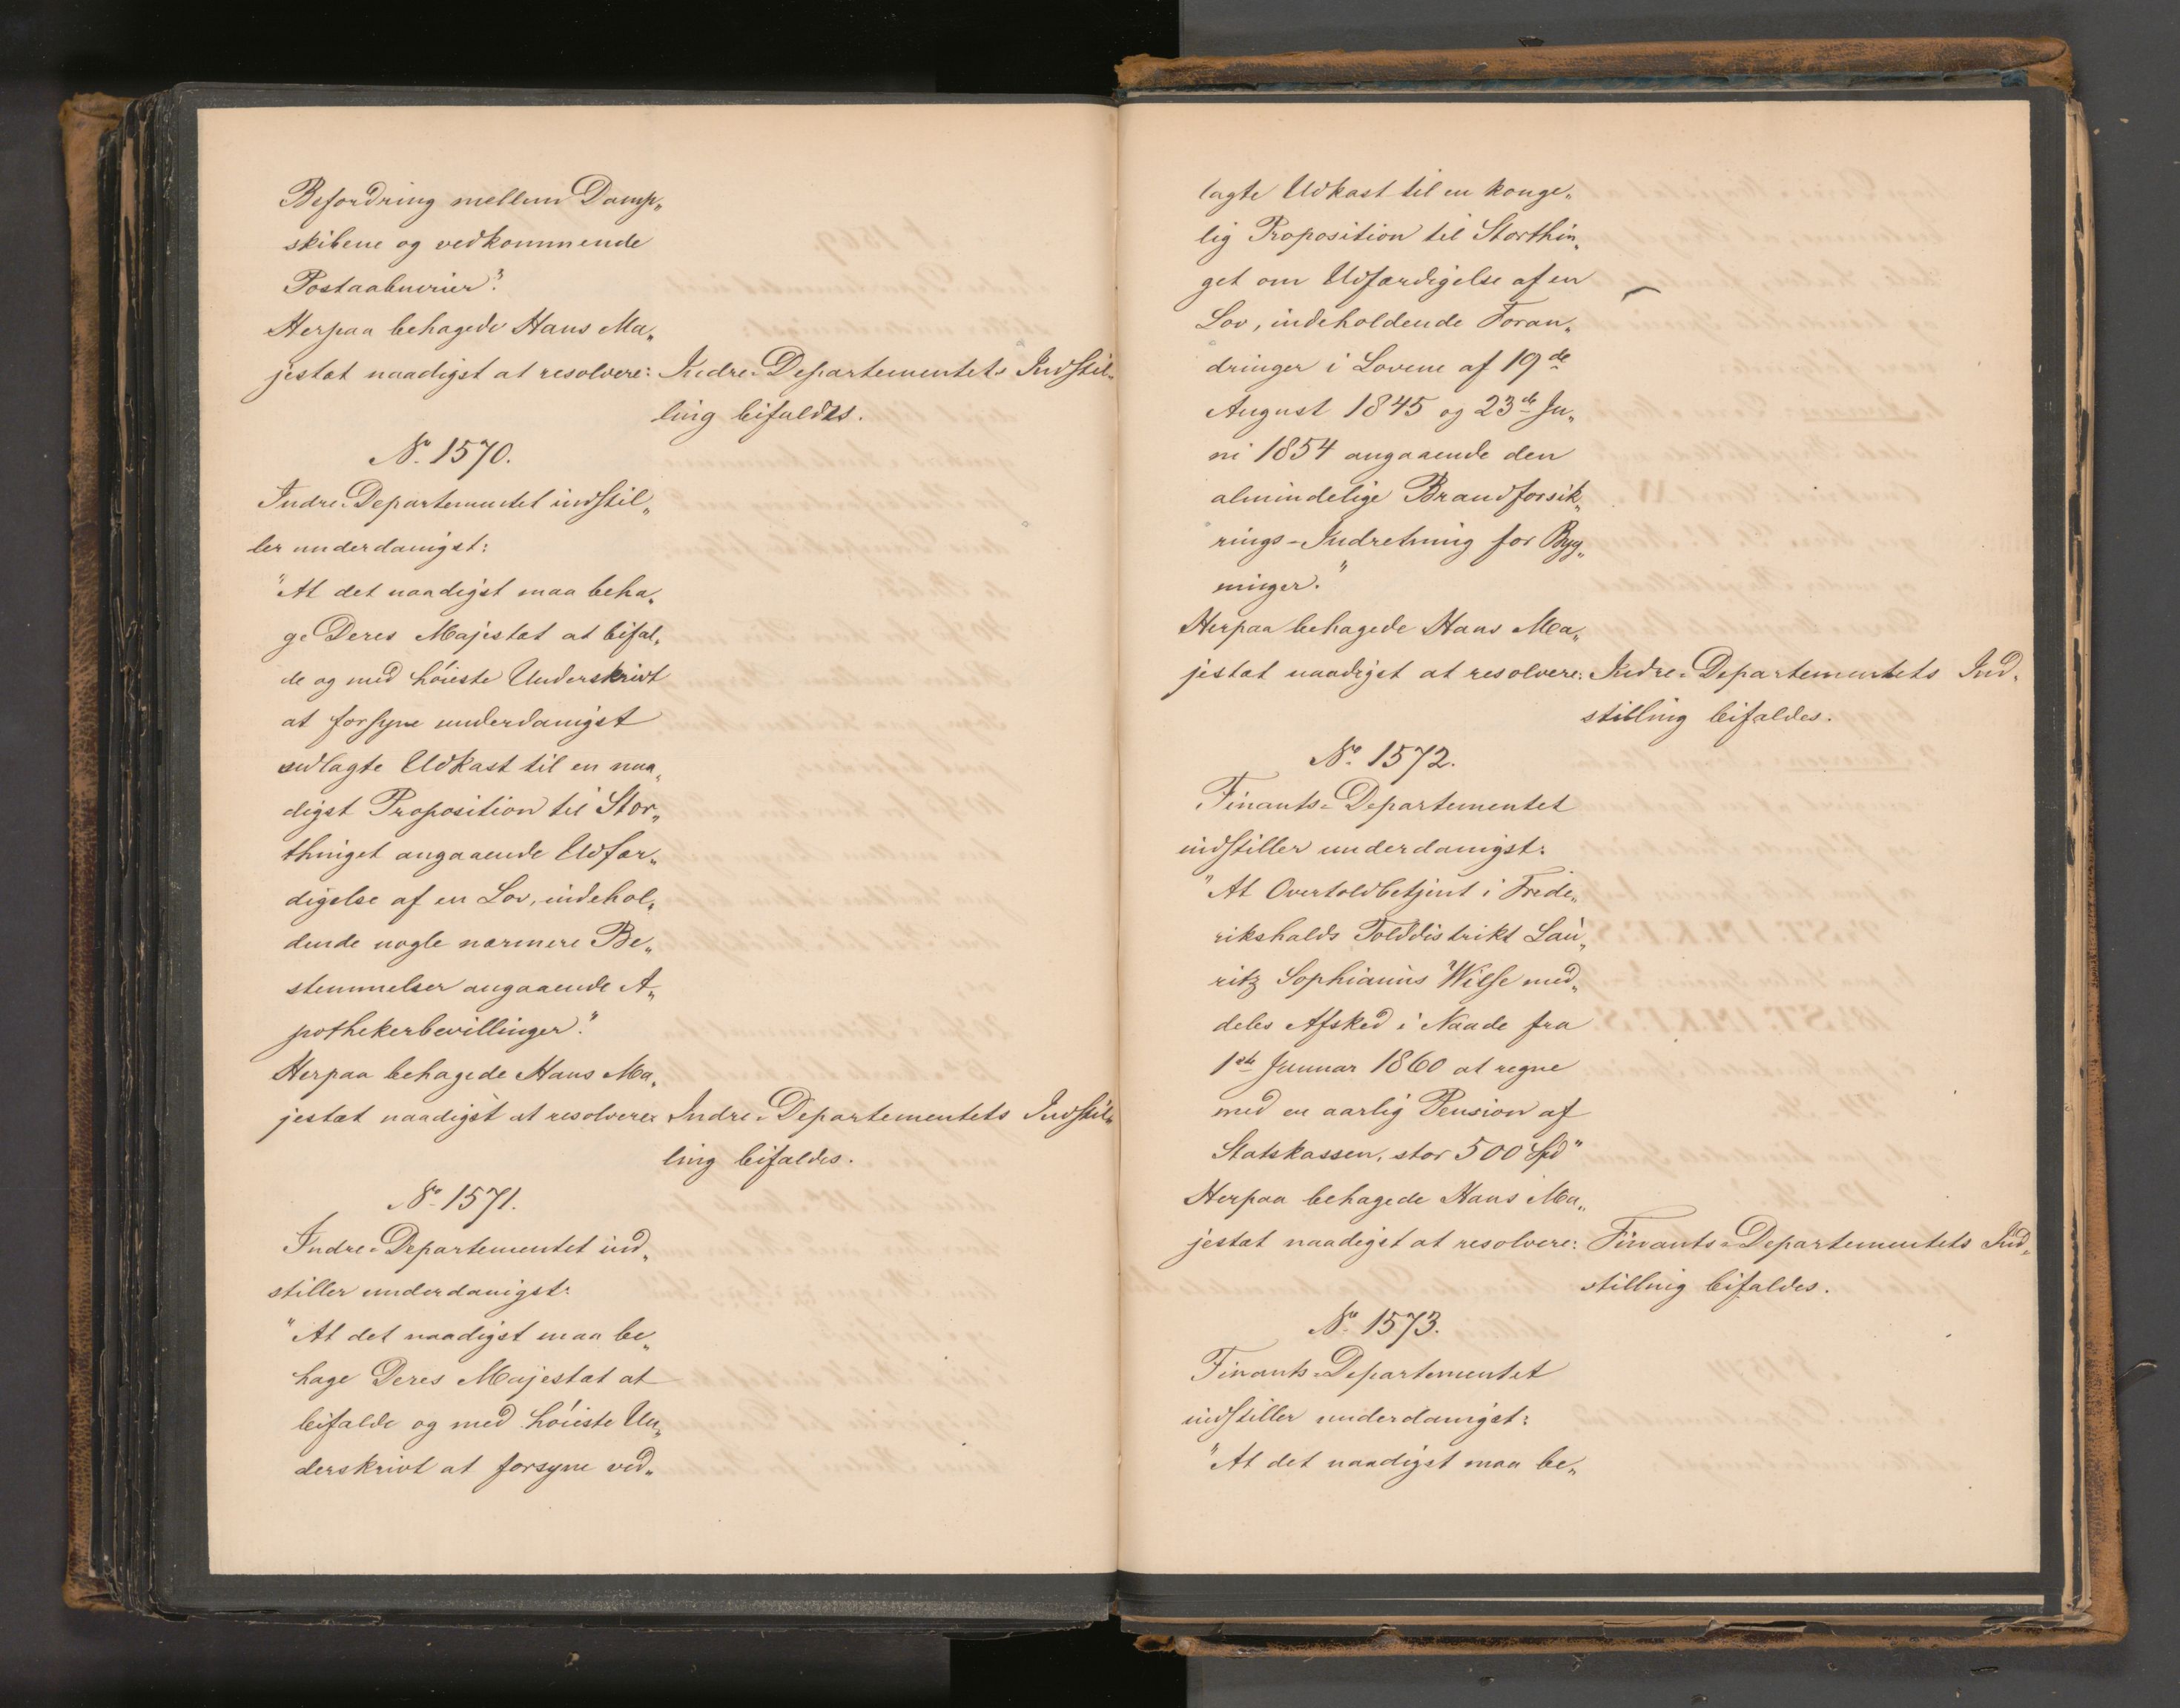 Befordring mellem Damp„
skibene og vedkommende
Postaabnerier".
Herpaa behagede Hans Ma„
jestæt naadigst at resolvere: Indre-Departementets Indstil„
ling bifaldes.
No. 1570.
Indre-Departementet indstil„
ler underdanigst:
"At det naadigst maa beha„
ge Deres Majestæt at bifal„
de og med høieste Underskrivt
at forsyne underdanigst
vedlagte Udkast til en naa„
digst Proposition til Stor„
thinget angaaende Udfær„
digelse af en Lov, indehol„
dende nogle nærmere Be„
stemmelser angaaende A„
pothekerbevillinger."
Herpaa behagede Hans Ma„
jestæt naadigst at resolvere: Indre-Departementets Indstil„
ling bifaldes.
No. 1571.
Indre-Departementet ind„
stiller underdanigst:
"At det naadigst maa be„
hage Deres Majestæt at
bifalde og med høieste Un„
derskrivt at forsyne ved„
lagte Udkast til en konge„
lig Proposition til Storthin„
get om Udfærdigelse af en
Lov, indeholdende Foran„
dringer i Lovene af 19de
August 1845 og 23de Ju„
ni 1854 angaaende den
almindelige Brandforsik„
rings-Indretning for Byg„
ninger."
Herpaa behagede Hans Ma„
jestæt naadigst at resolvere: Indre-Departementets Ind„
stilling bifaldes.
No. 1572.
Finants-Departementet
indstiller underdanigst:
"At Overtoldbetjent i Frede„
rikshalds Tolddistrikt Lau„
ritz Sophianus Wilse med„
deles Afsked i Naade fra
1ste Januar 1860 at regne
med en aarlig Pension af
Statskassen, stor 500 Spd"
Herpaa behagede Hans Ma„
jestæt naadigst at resolvere: Finants-Departementets Ind„
stilling bifaldes.
No. 1573.
Finants-Departementet
indstiller underdanigst:
"At det naadigst maa be„